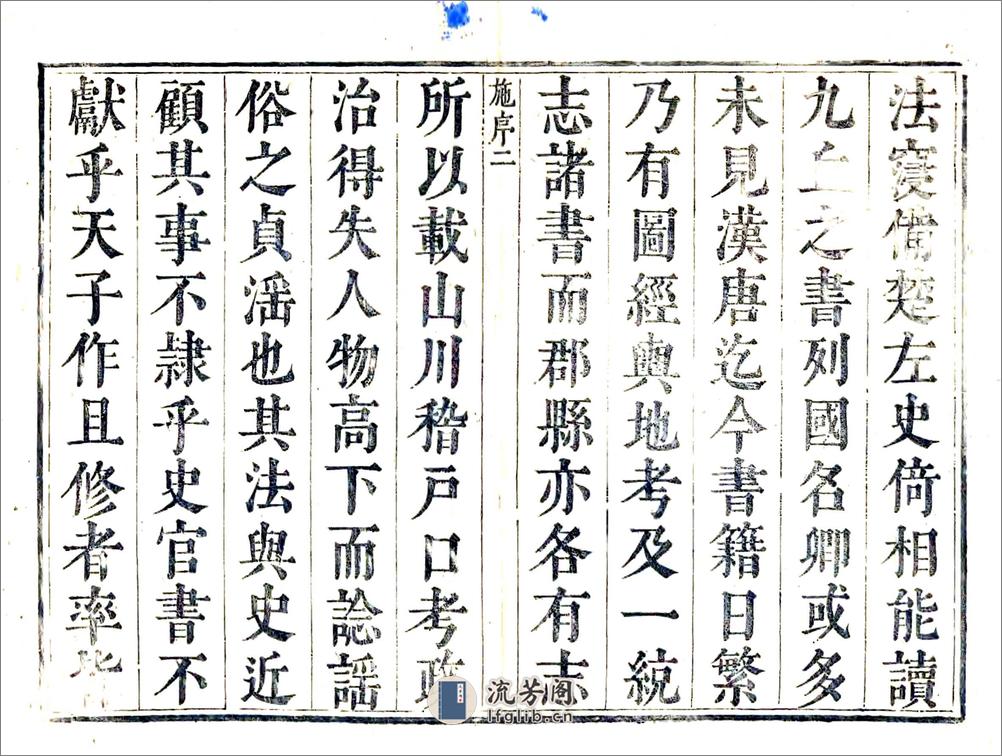 法寖備楚左史倚相能讀
九丘之書列國名卿或多
未見漢唐迄今書籍日繁
乃有圖經輿地考及一統
志諸書而郡縣亦各有志
施序二
所以載山川稽戶口考政
治得失人物高下而諗謡
俗之貞滛也其法與史近
顧其事不隷乎史官書不
獻乎天子作且修者率皆
流芳阁
lfglib.cn